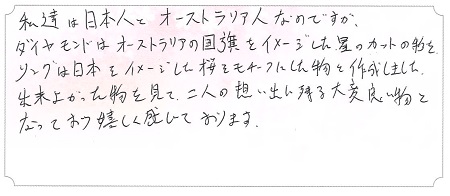 私達は日本人とオーストラリア人なのですが、
ダイヤモンドはオーストラリアの国旗をイメージした星のカットの物を、
リングは日本をイメージした桜をモチーフにした物を作成しました。
出来上がった物を見て、二人の想い出に残る大変良い物と
なっており嬉しく感じております。